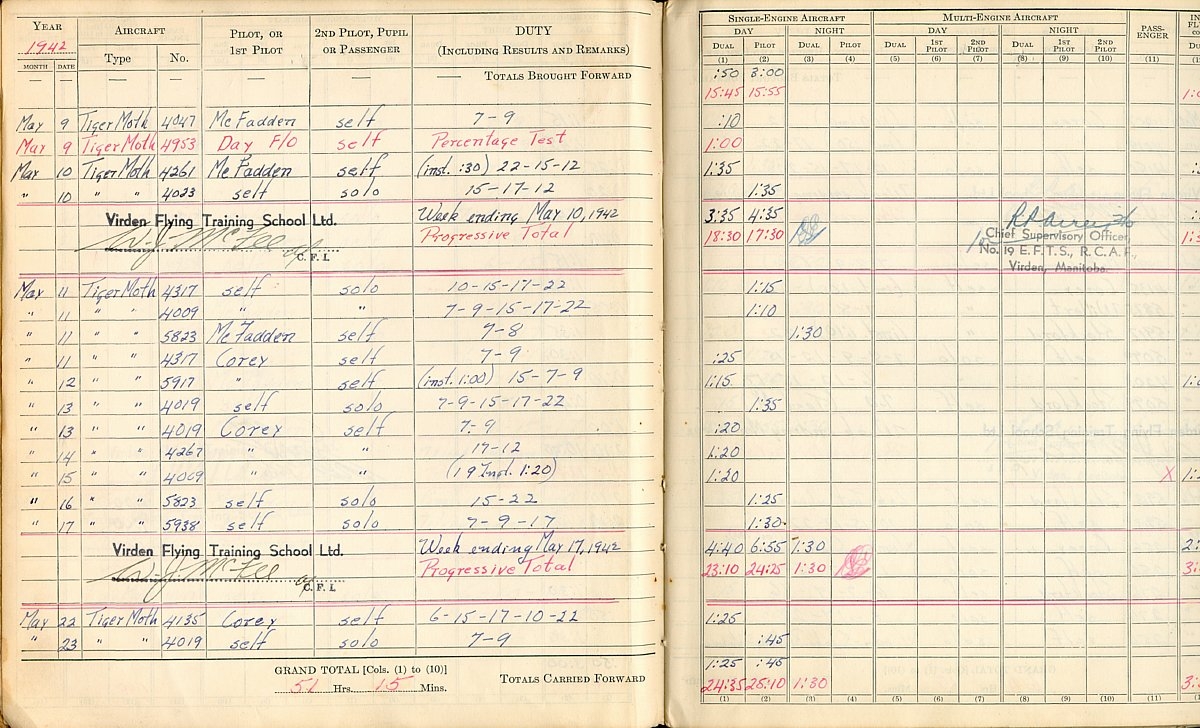 YEAR AIRCRAFT PILOT, OR 1ST PILOT 2ND PILOT, PUPIL OR PASSENGER DUTY (INCLUDING RESULTS AND REMARKS) SINGLE-ENGINE AIRCRAFT MULTI-ENGINE AIRCRAFT PASS-ENGER
1942 DAY NIGHT DAY NIGHT
MONTH DATE Type No. DUAL PILOT DUAL PILOT DUAL 1ST PILOT 2ND PILOT DUAL 1ST PILOT 2ND PILOT
(1) (2) (3) (4) (5) (6) (7) (8) (9) (10) (11)
— — — — — — — TOTALS BROUGHT FORWARD :50 3:00
15:45 15:55
May 9 Tiger Moth 4047 McFadden self 7-9 :10
May 9 Tiger Moth 4953 Day F/O self Percentage Test 1:00
May 10 Tiger Moth 4261 McFadden self (inst. :30) 22-15-12 1:35
" 10 " " 4023 self solo 15-17-12 1:35
Virden Flying Training School Ltd. Week ending May 10, 1942 3:35 4:35
W.J. McFee Progressive Total 18:30 17:30
C. F. I.
Chief Supervisory Officer,
No. 19 E.F.T.S., R.C.A.F.,
Virden, Manitoba.
May 11 Tiger Moth 4317 self solo 10-15-17-22 1:15
" 11 " " 4009 " " 7-9-15-17-22 1:10
" 11 " " 5823 McFadden self 7-8 1:30
" 11 " " 4317 Corey self 7-9 :25
" 12 " " 5917 " self (inst. 1:00) 15-7-9 1:15
" 13 " " 4019 self solo 7-9-15-17-22 1:35
" 13 " " 4019 Corey self 7-9 :20
" 14 " " 4267 " " 17-12 1:20
" 15 " " 4009 " " (19 Inst. 1:20) 1:20 X
" 16 " " 5823 self solo 15-22 1:25
" 17 " " 5938 self solo 7-9-17 1:30
Virden Flying Training School Ltd. Week ending May 17, 1942 4:40 6:55 1:30
W.J. McFee Progressive Total 23:10 24:25 1:30
C. F. I.
May 22 Tiger Moth 4135 Corey self 6-15-17-10-22 1:25
" 23 " " 4019 self solo 7-9 :45
GRAND TOTAL [Cols. (1) to (10)] TOTALS CARRIED FORWARD 1:25 :45
51 Hrs. 15 Mins. 24:35 25:10 1:30
(1) (2) (3) (4) (5) (6) (7) (8) (9) (10) (11)